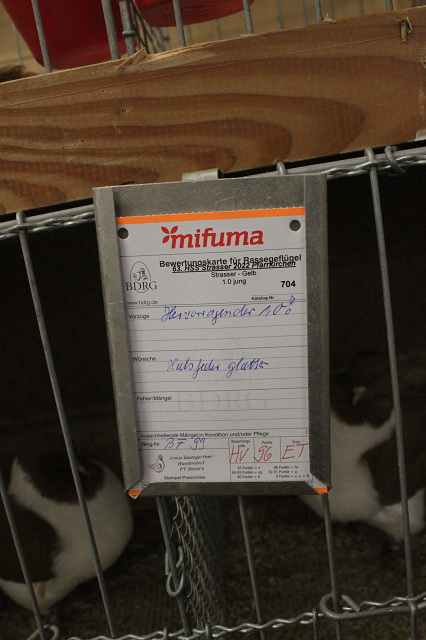 mifuma
Bewertungskarte für Rassegeflügel
63. HSS Strasser 2022 Pfarrkirchen
Strasser - Gelb
1.0 jung
BDRG
www.bdrg.de
Katalog-Nr.
704
Vorzüge
Hervorragender 1.0
Wünsche
Halsfeder glatter
Fehler/Mängel
Ausschließende Mängel in Kondition und/oder Pflege
Ring-Nr. BF 99
Bewertungsnote Punkte Preis
HV 96 ET
Stempel Preisrichter